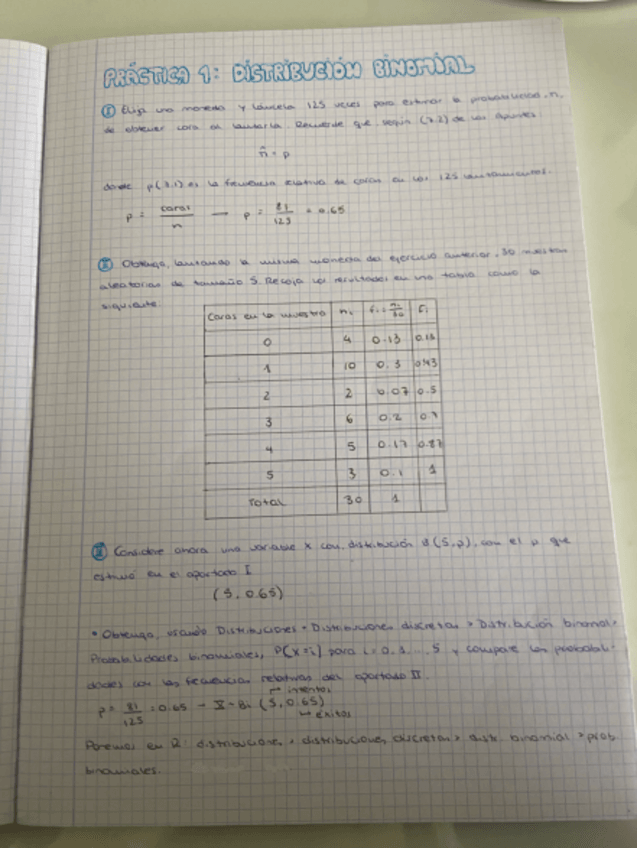 PRÁCTICA 1: DISTRIBUCIÓN BINOMIAL
I Elija una moneda y láncela 125 veces para estimar la probabilidad, π,
de obtener cara al lanzarla. Recuerde que según (7.2) de los apuntes
π̂ = p
donde p(7.1) es la frecuencia relativa de caras en los 125 lanzamientos.
p = caras / n → p = 81 / 125 = 0.65
II Obtenga, lanzando la misma moneda del ejercicio anterior, 30 muestras
aleatorias de tamaño 5. Recoja los resultados en una tabla como la
siguiente:
Caras en la muestra ni fi = ni/30 Fi
0 4 0.13 0.13
1 10 0.3 0.43
2 2 0.07 0.5
3 6 0.2 0.7
4 5 0.17 0.87
5 3 0.1 1
Total 30 1
III Considere ahora una variable X con distribución B(5,p), con el p que
estimó en el apartado I
(5, 0.65)
• Obtenga, usando Distribuciones > Distribuciones discretas > Distribución binomial >
Probabilidades binomiales, P[X=i] para i=0,1,...,5 y compare las probabili-
dades con las frecuencias relativas del apartado II.
→ intentos
p = 81 / 125 = 0.65 → X ~ Bi (5, 0.65)
→ éxitos
Ponemos en R: distribuciones > distribuciones discretas > distr. binomial > prob.
binomiales.